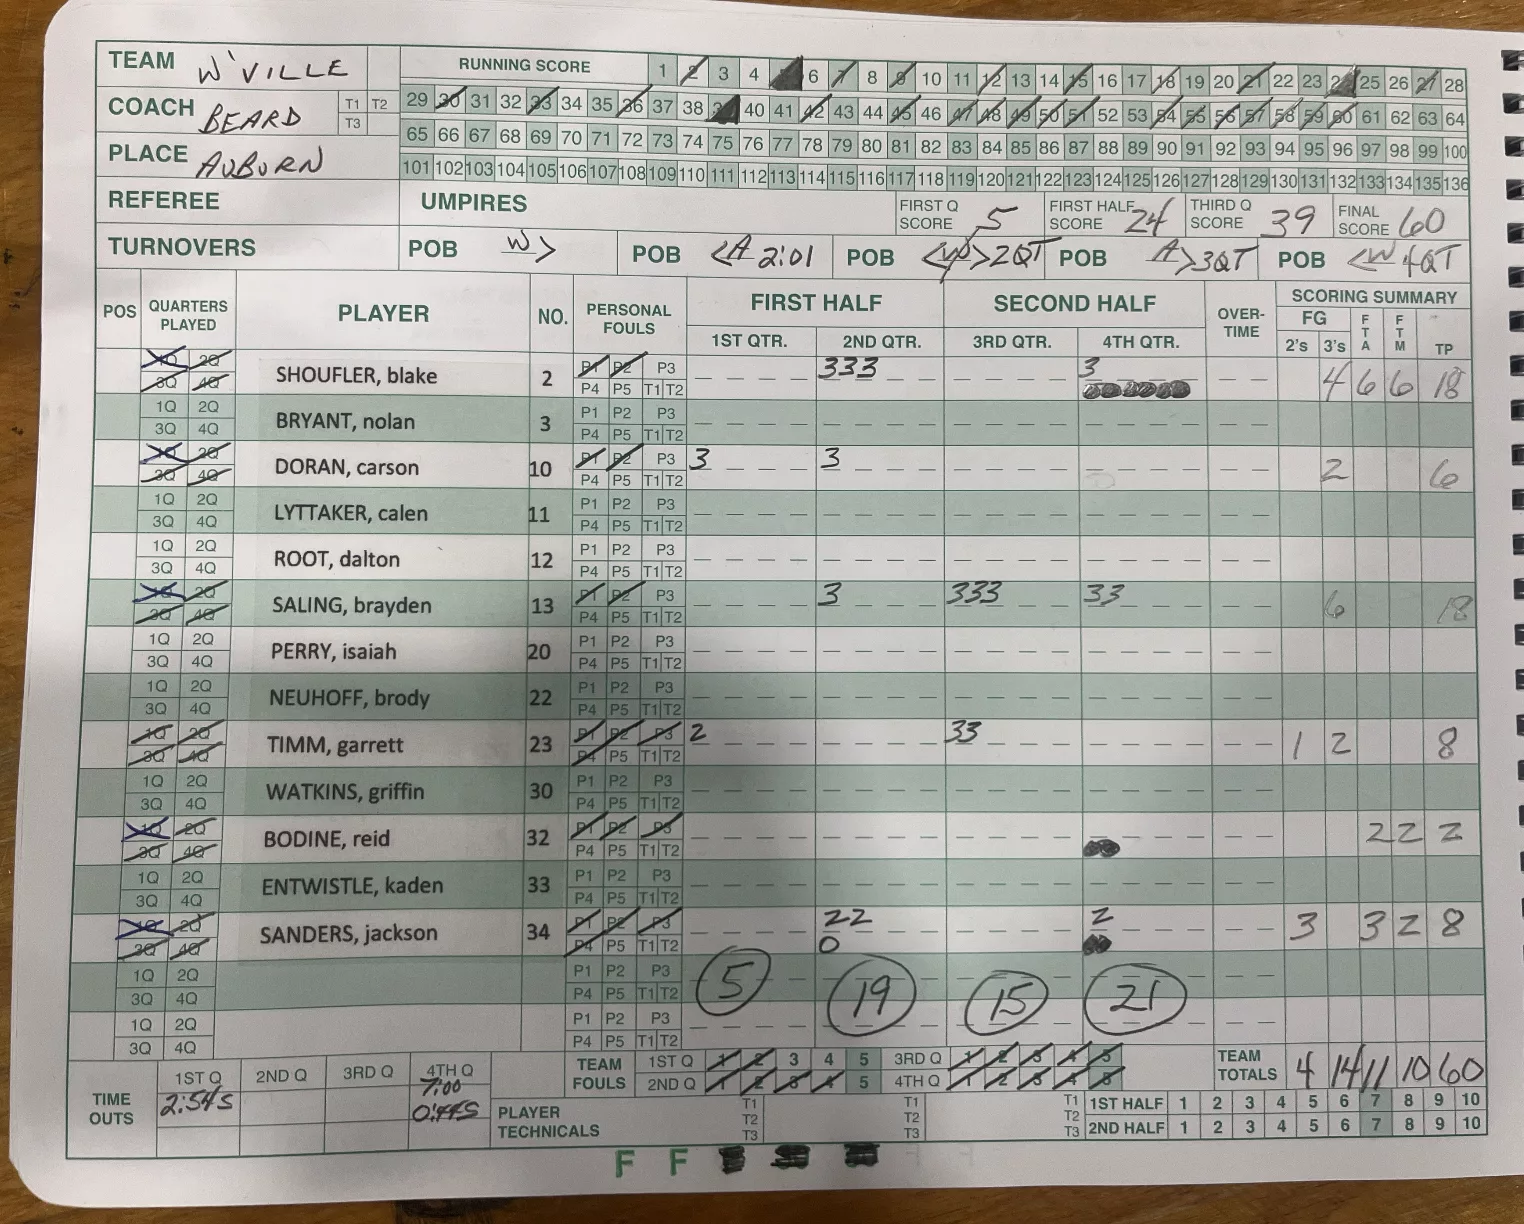 TEAM W'VILLE
RUNNING SCORE 1 2 3 4 6 7 8 9 10 11 12 13 14 15 16 17 18 19 20 21 22 23 24 25 26 27 28
COACH BEARD T1 T2 T3
29 30 31 32 33 34 35 36 37 38 39 40 41 42 43 44 45 46 47 48 49 50 51 52 53 54 55 56 57 58 59 60 61 62 63 64
65 66 67 68 69 70 71 72 73 74 75 76 77 78 79 80 81 82 83 84 85 86 87 88 89 90 91 92 93 94 95 96 97 98 99 100
PLACE AUBURN
101 102 103 104 105 106 107 108 109 110 111 112 113 114 115 116 117 118 119 120 121 122 123 124 125 126 127 128 129 130 131 132 133 134 135 136
REFEREE UMPIRES FIRST Q SCORE 5 FIRST HALF SCORE 24 THIRD Q SCORE 39 FINAL SCORE 60
TURNOVERS POB W> POB <A 2:01 POB 2QT POB A>3QT POB <W 4QT
POS QUARTERS PLAYED PLAYER NO. PERSONAL FOULS FIRST HALF SECOND HALF OVER-TIME SCORING SUMMARY
1ST QTR. 2ND QTR. 3RD QTR. 4TH QTR. FG 2's 3's FTA FTM TP
1Q 2Q 3Q 4Q SHOUFLER, blake 2 P1 P2 P3 P4 P5 T1 T2 333 3 4 6 6 18
1Q 2Q 3Q 4Q BRYANT, nolan 3 P1 P2 P3 P4 P5 T1 T2
1Q 2Q 3Q 4Q DORAN, carson 10 P1 P2 P3 P4 P5 T1 T2 3 3 2 6
1Q 2Q 3Q 4Q LYTTAKER, calen 11 P1 P2 P3 P4 P5 T1 T2
1Q 2Q 3Q 4Q ROOT, dalton 12 P1 P2 P3 P4 P5 T1 T2
1Q 2Q 3Q 4Q SALING, brayden 13 P1 P2 P3 P4 P5 T1 T2 3 333 33 6 18
1Q 2Q 3Q 4Q PERRY, isaiah 20 P1 P2 P3 P4 P5 T1 T2
1Q 2Q 3Q 4Q NEUHOFF, brody 22 P1 P2 P3 P4 P5 T1 T2
1Q 2Q 3Q 4Q TIMM, garrett 23 P1 P2 P3 P4 P5 T1 T2 2 33 1 2 8
1Q 2Q 3Q 4Q WATKINS, griffin 30 P1 P2 P3 P4 P5 T1 T2
1Q 2Q 3Q 4Q BODINE, reid 32 P1 P2 P3 P4 P5 T1 T2 2 2 2
1Q 2Q 3Q 4Q ENTWISTLE, kaden 33 P1 P2 P3 P4 P5 T1 T2
1Q 2Q 3Q 4Q SANDERS, jackson 34 P1 P2 P3 P4 P5 T1 T2 22 0 2 3 3 2 8
1Q 2Q 3Q 4Q P1 P2 P3 P4 P5 T1 T2 5 19 15 21
1Q 2Q 3Q 4Q P1 P2 P3 P4 P5 T1 T2
TIME OUTS 1ST Q 2:54.5 2ND Q 3RD Q 4TH Q 7:00
TEAM FOULS 1ST Q 1 2 3 4 5 3RD Q 1 2 3 4 5 TEAM TOTALS 4 14 11 10 60
2ND Q 1 2 3 4 5 4TH Q 1 2 3 4 5
PLAYER TECHNICALS T1 T2 T3 T1 T2 T3 T1 T2 T3 1ST HALF 1 2 3 4 5 6 7 8 9 10
2ND HALF 1 2 3 4 5 6 7 8 9 10
F F